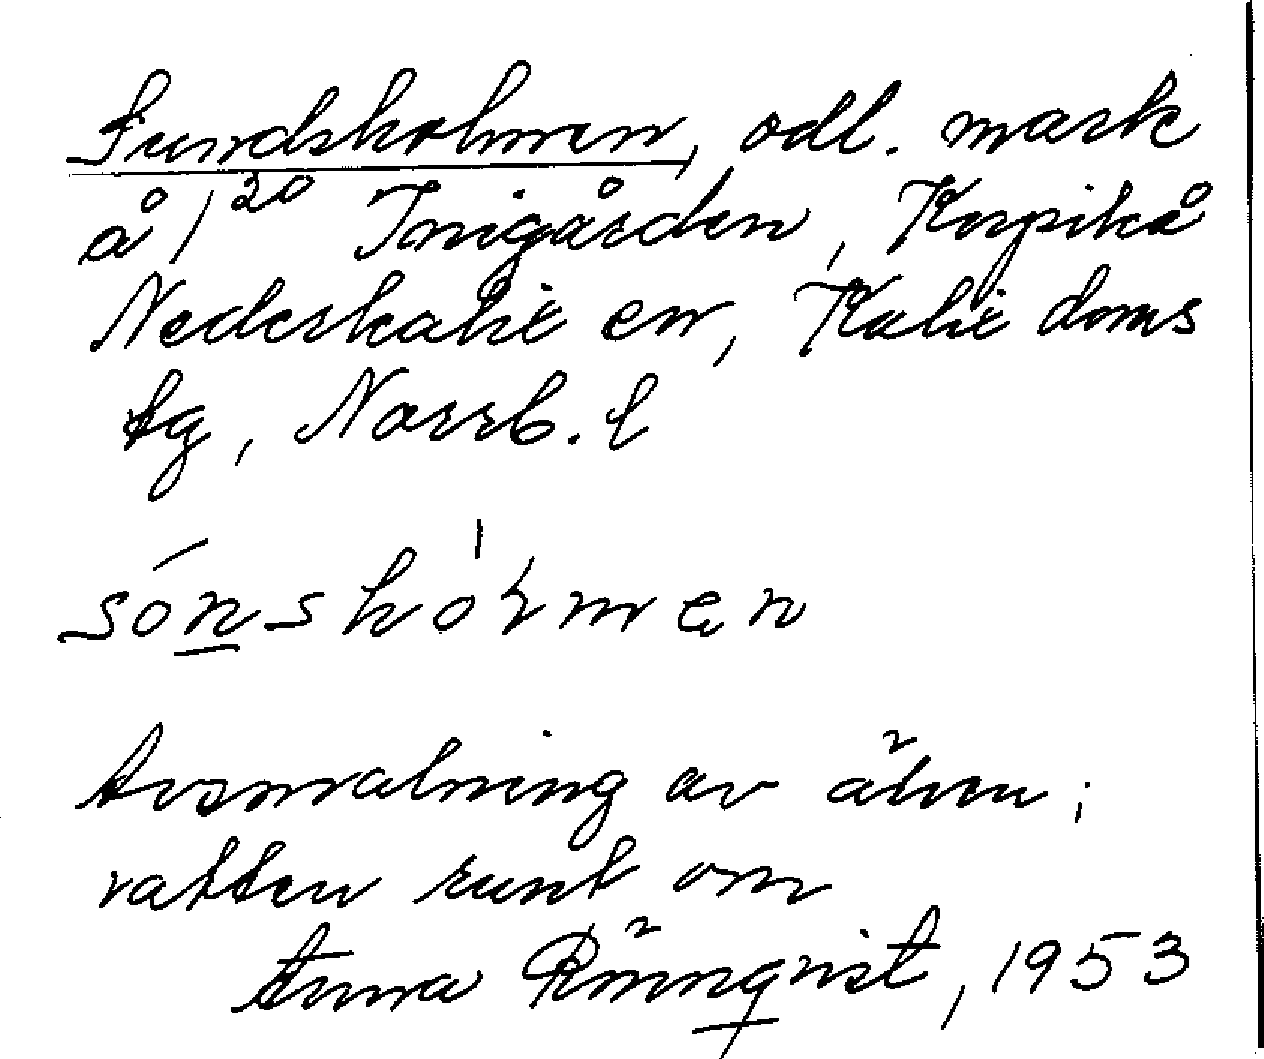 Sundsholmen, odl. mark
å 1²⁰ Tonigården, Korpikå
Nederkalix en, Kalix doms
tg, Norrb. l
sónshólmen
Avsmalning av älven;
vatten runt om
Anna Rönnqvist, 1953